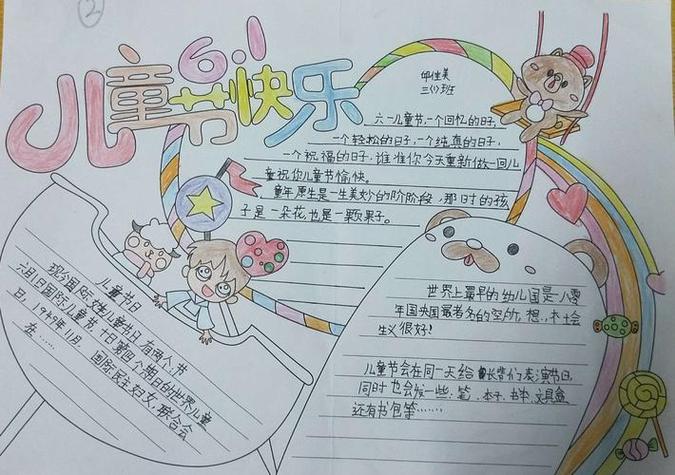 ②
儿童节快乐
6.1
邱佳美
三(1)班
六一儿童节,一个回忆的日子,
一个轻松的日子,一个纯真的日子,
一个祝福的日子,谁谁你今天重新做一回儿
童祝您儿童节愉快。
童年原生是一生美妙的阶阶段,那时的孩
子是一朵花,也是一颗果子。
儿童节日
六月1日国际儿童节,十日第四个期日的世界儿童
日,1949年11月,国际民主妇女联合会
在……
世界上最早的幼儿园是
年国央国最著名的空
生义很好!
儿童节会在同一天给 长辈们表演节目,
同时也会发一些,笔,本子,书本,文具盒
还有书包等……